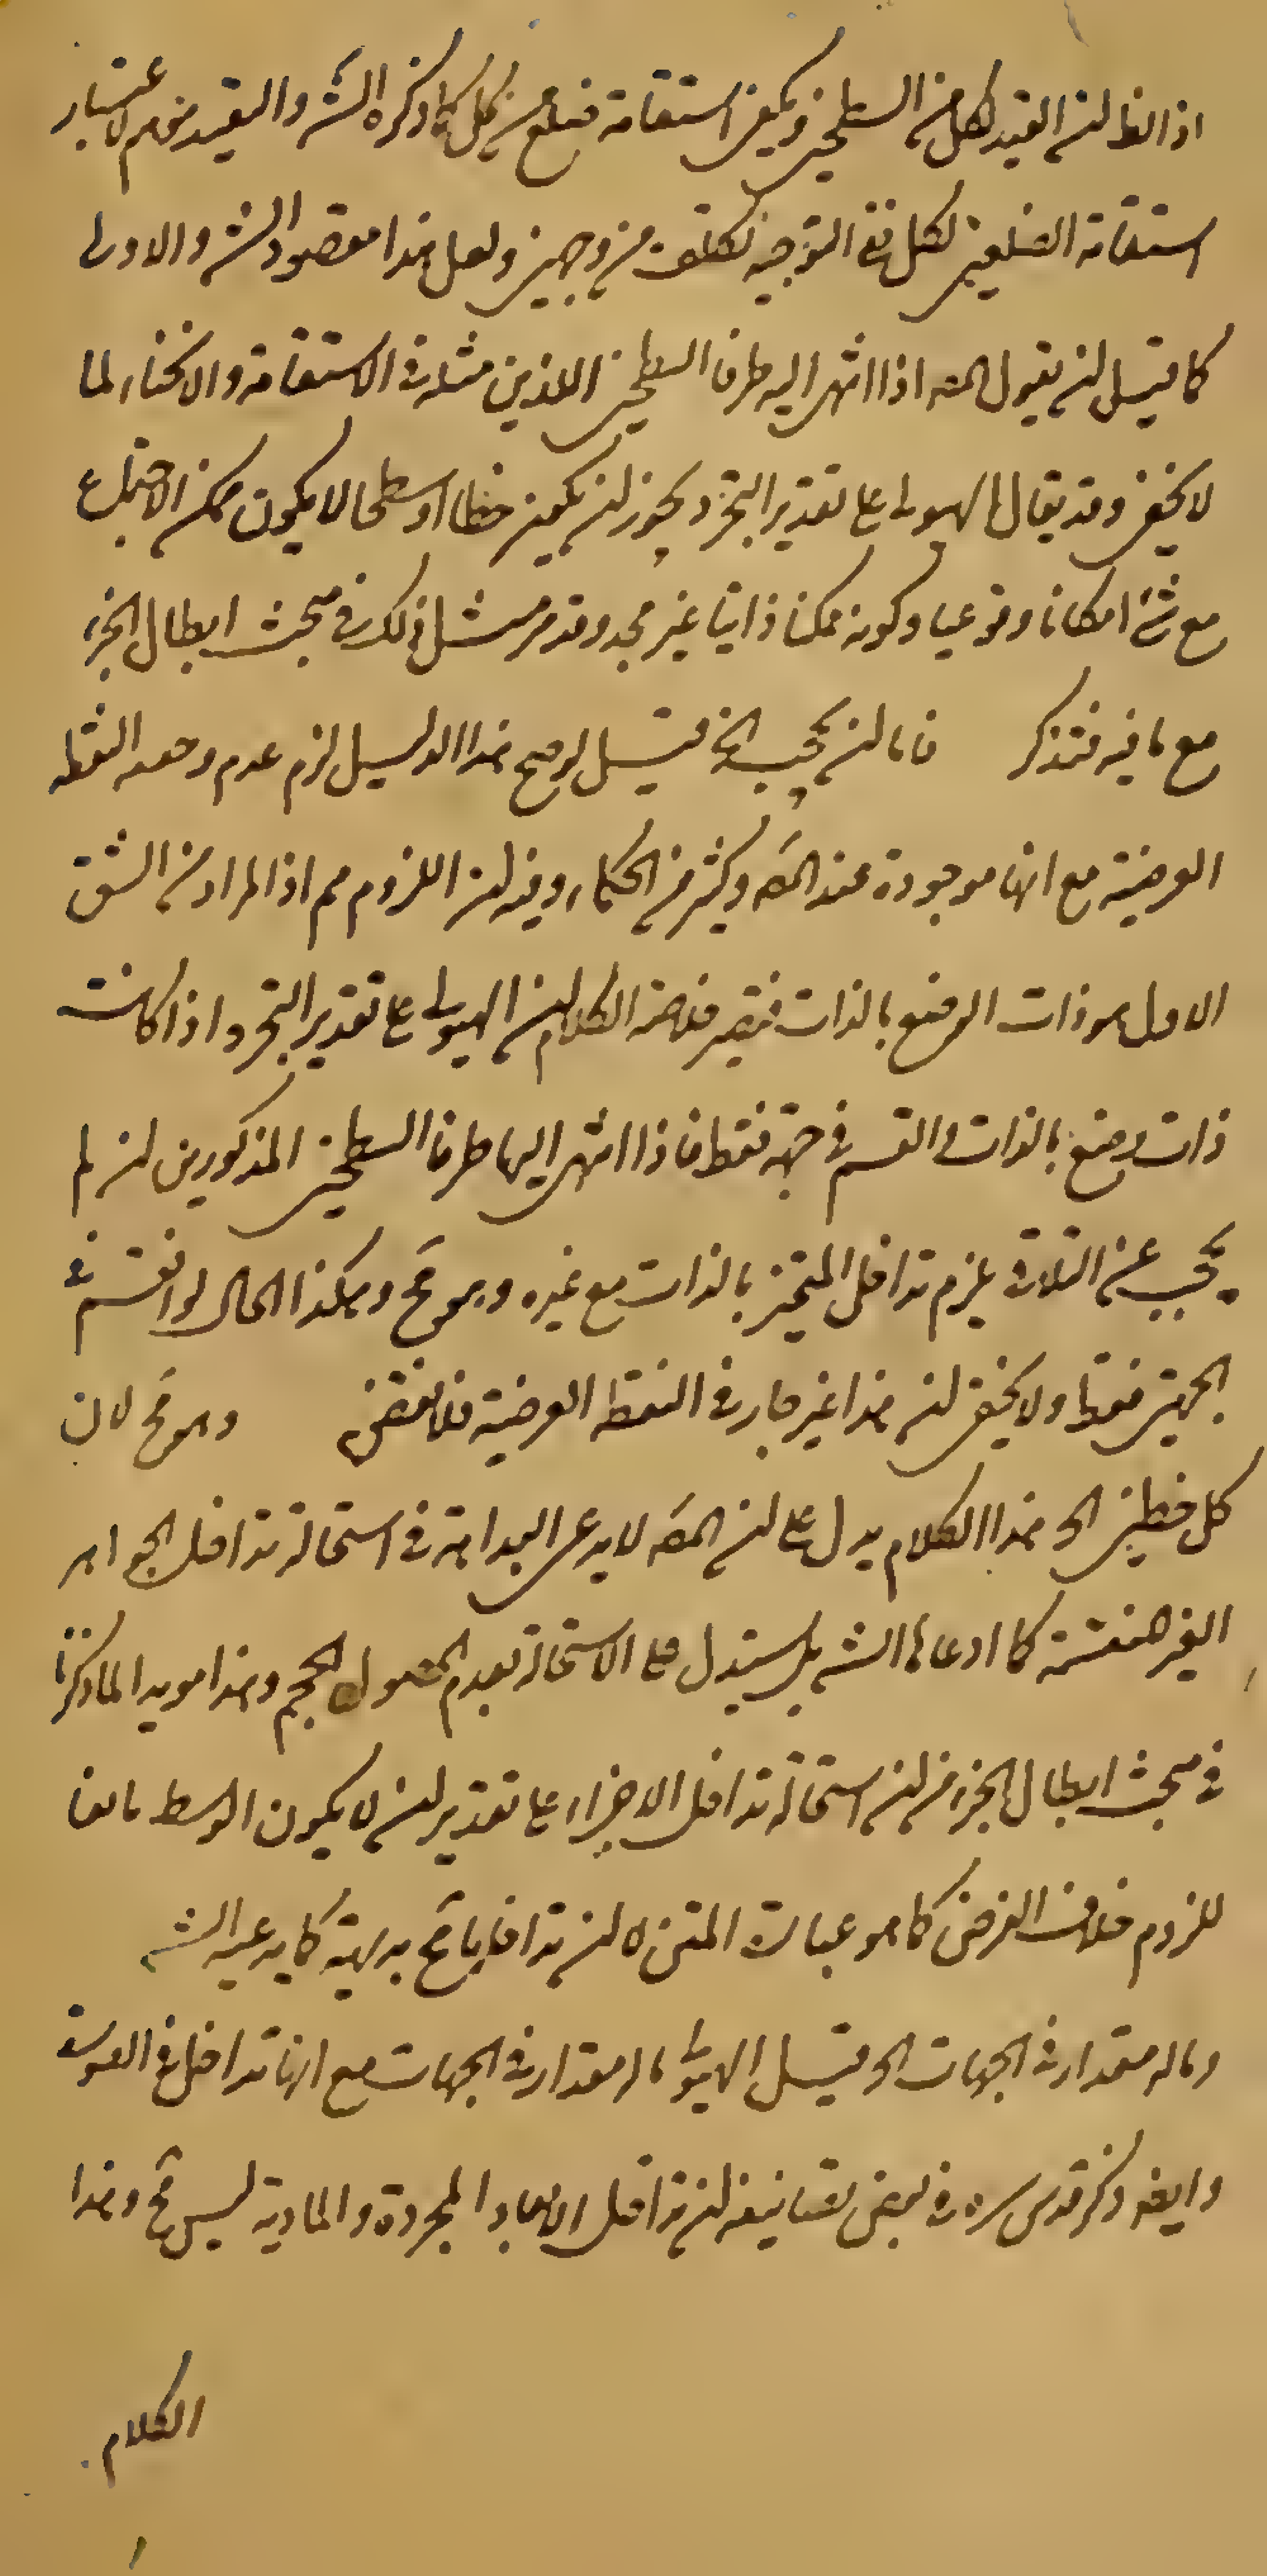 اذ الظ ان القيد لكل من السطحين ويكفي استقامة ضلع من كل كما ذكره الش والتقييد موهم لاعتبار
استقامة الضلعين لكل ففي التوجيه تكلف من وجهين ولعل هذا مقصود الش والاولى
كما قيل ان يقول المصه اذا انتهى اليه طرفا السطحين اللذين مثله في الاستقامة والانحناء لما
لا يخفى وقد يقال الهيولى على تقدير التجرد يجوز ان يكون خطا او سطحا لا يكون ممكن الاجتماع
مع شئ امكانا وقوعيا وكونه ممكنا ذاتيا غير مجد وقد مر مثل ذلك في مبحث ابطال الجزء
مع ما فيه فتذكر فاما ان يحجب الخ قيل لو صح هذا الدليل لزم عدم وجود النقطه
العرضية مع انها موجودة عند المصه وكثير من الحكماء وفيه ان اللزوم مم اذ المراد من الشق
الاول هو ذات الوضع بالذات فتصير خلاصة الكلام ان الهيولى على تقدير التجرد اذا كانت
ذات وضع بالذات وانقسم في جهة فقط فاذا انتهى اليها طرفا السطحين المذكورين ان لم
يحجب عن التلاقي يلزم تداخل المتحيز بالذات مع غيره وهو مح وهكذا الحال لو انقسم في
الجهتين فقط ولا يخفى ان هذا غير جار في النقطه العرضية فلا نقض وهو مح لان
كل خطين الخ هذا الكلام يدل على ان المصه لا يدعى البداهة في استحالة تداخل الجواهر
الغير المنقسمة كما ادعاها الش بل يستدل على الاستحالة بعدم الحصول الحجم وهذا مويد لما ذكرنا
في مبحث ابطال الجزء من ان استحالة تداخل الاجزاء على تقدير ان لا يكون الوسط مانعا
للزوم خلاف الفرض كما هو عبارت المتن لا ان تداخلها مح بديهة كما يدعيه الش
وماله مقدار في الجهات الخ قيل الهيولى ماله مقدار في الجهات مع انها تداخل في الصورة
وايضه ذكر قدس سره في بعض تصانيفه ان تداخل الابعاد المجردة والمادية ليس مح وهذا
الكلام